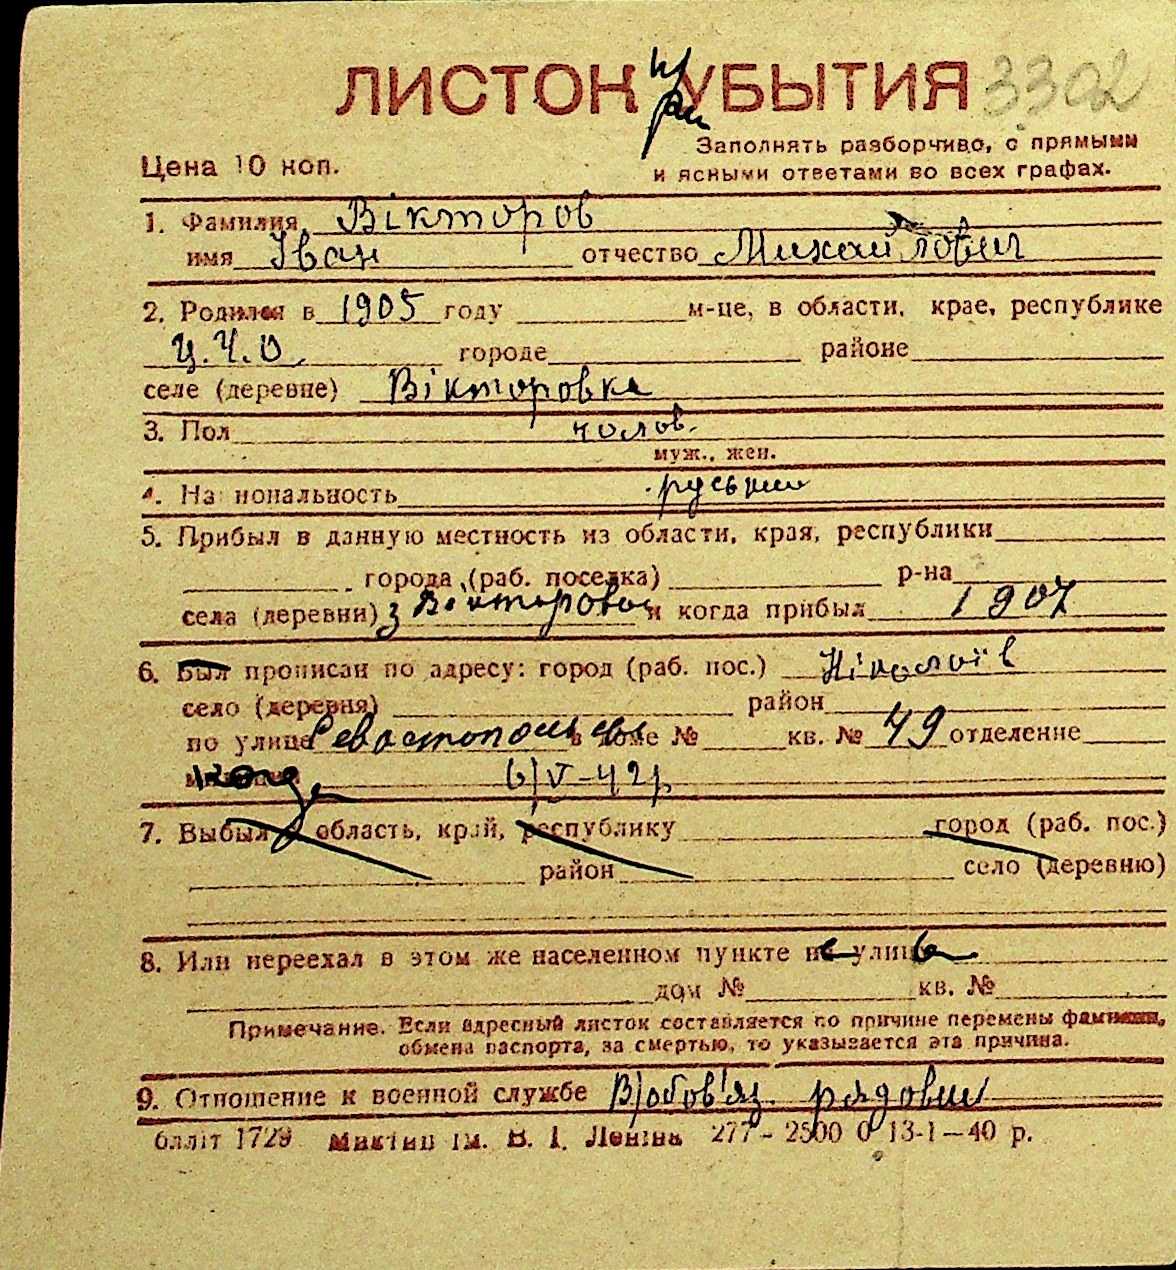 ЛИСТОК УБЫТИЯ 3302
при
Заполнять разборчиво, с прямыми
Цена 10 коп. и ясными ответами во всех графах.
1. Фамилия Вікторов
имя Іван отчество Михайлович
2. Родился в 1905 году м-це, в области, крае, республике
Ц.Ч.О. городе районе
селе (деревне) Вікторовка
3. Пол чолов.
муж., жен.
4. Национальность руський
5. Прибыл в данную местность из области, края, республики
города (раб. поселка) р-на
села (деревни) з Вікторовки и когда прибыл 1907
6. Был прописан по адресу: город (раб. пос.) Ніколаїв
село (деревня) район
по улице Севастопольськ в доме № кв. № 49 отделение
6/V-42р.
7. Выбыл в область, край, республику город (раб. пос.)
район село (деревню)
8. Или переехал в этом же населенном пункте на улицу
дом № кв. №
Примечание. Если адресный листок составляется по причине перемены фамилии,
обмена паспорта, за смертью, то указывается эта причина.
9. Отношение к военной службе В/обов'яз. рядовий
бліт 1729 Миктип ім. В. І. Леніна 277-2500 0 13-1-40 р.